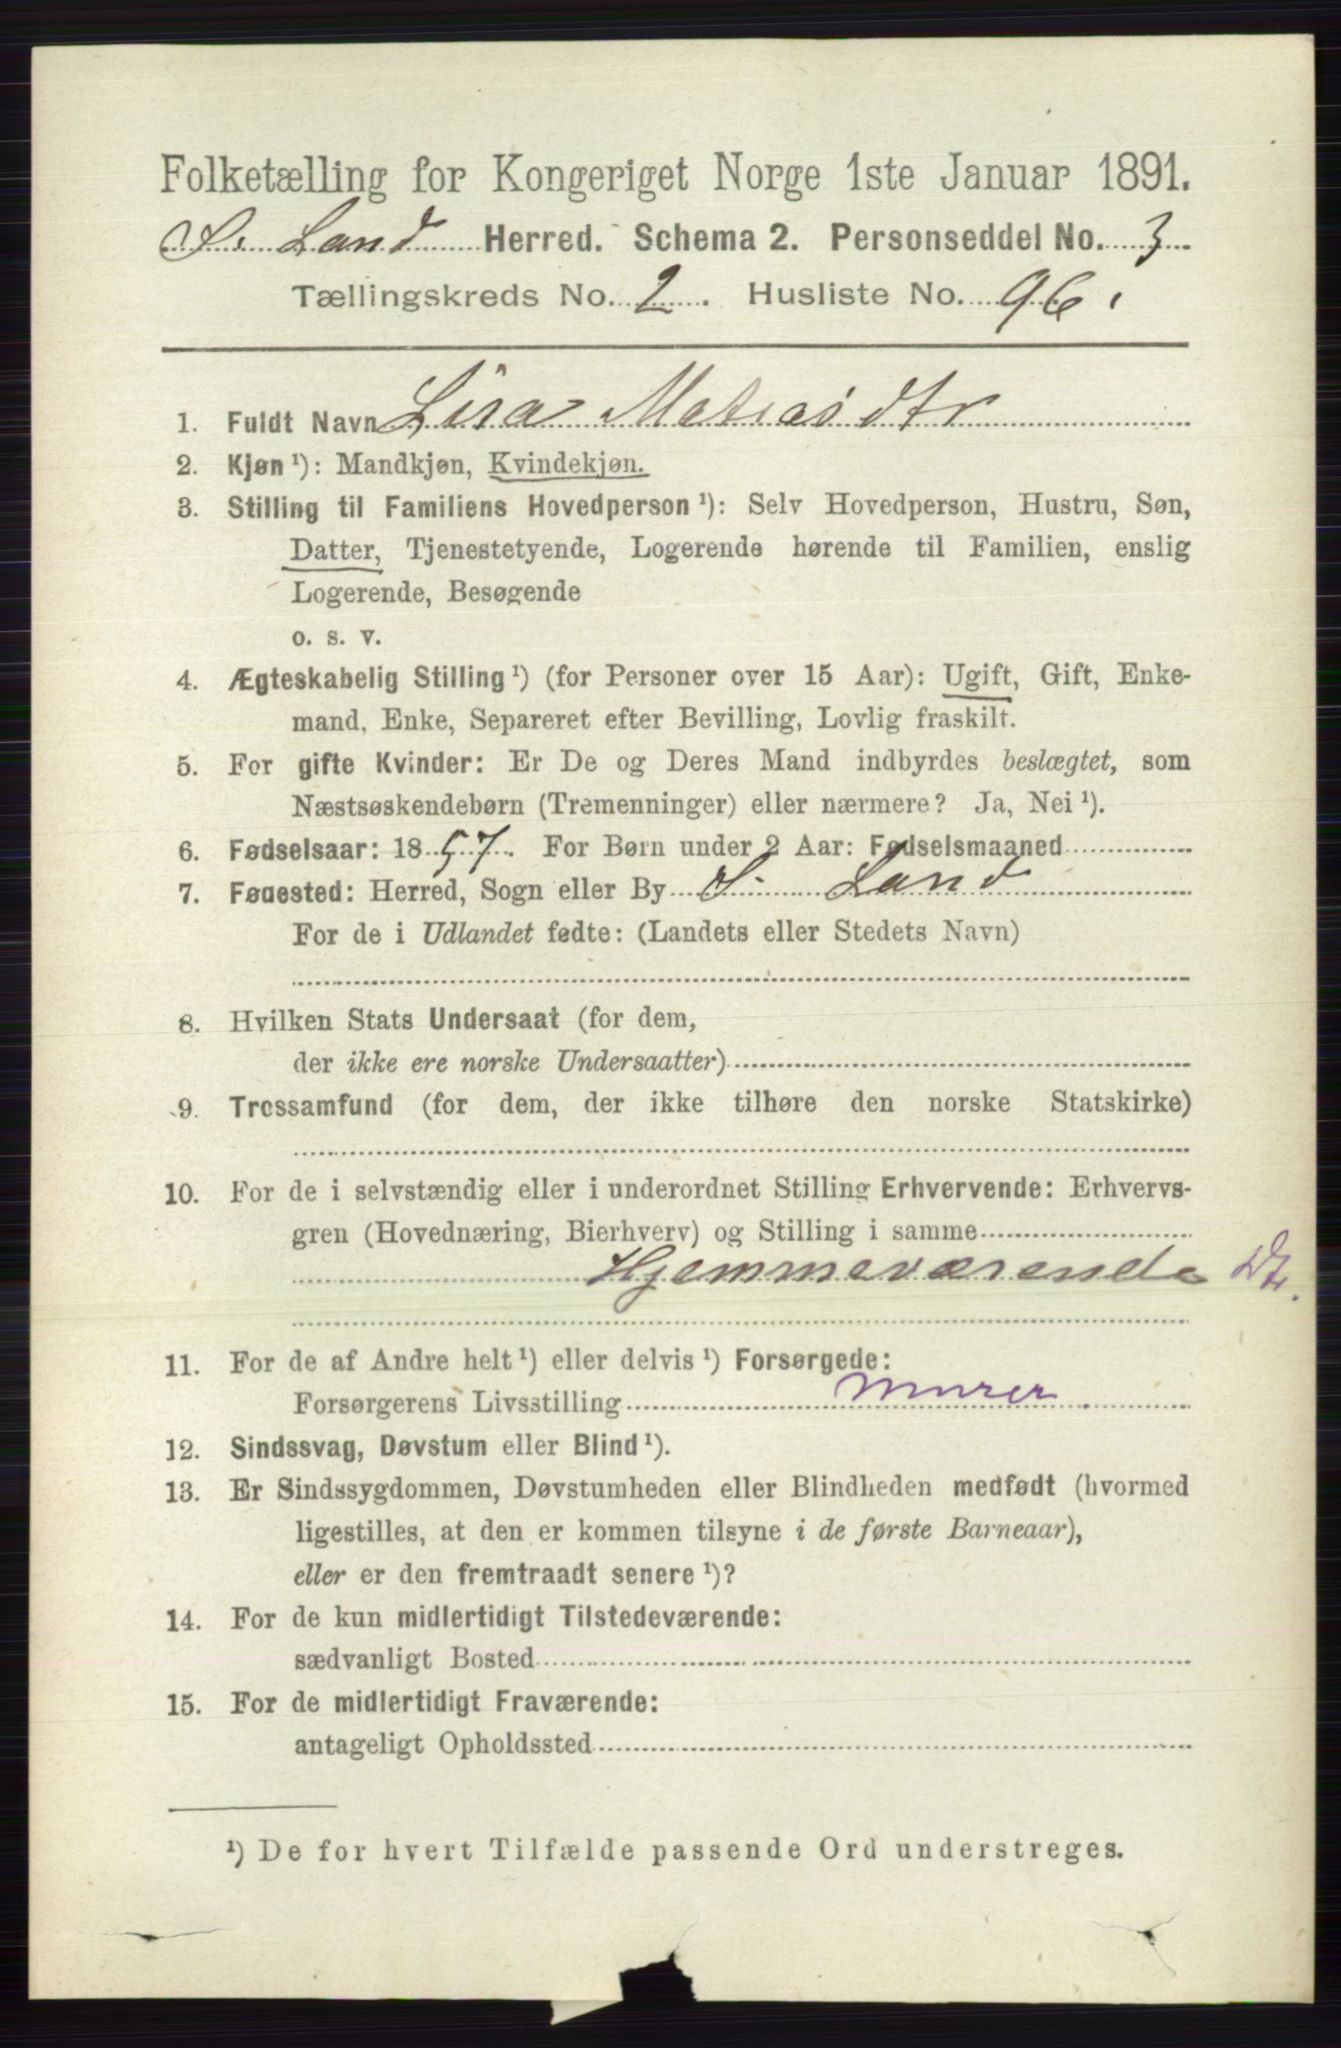 Folketælling for Kongeriget Norge 1ste Januar 1891.
S. Land Herred. Schema 2. Personseddel No. 3
Tællingskreds No. 2. Husliste No. 96.
1. Fuldt Navn Lisa Matiasdtr
2. Kjøn ¹): Mandkjøn, Kvindekjøn.
3. Stilling til Familiens Hovedperson ¹): Selv Hovedperson, Hustru, Søn,
Datter, Tjenestetyende, Logerende hørende til Familien, enslig
Logerende, Besøgende
o. s. v.
4. Ægteskabelig Stilling ¹) (for Personer over 15 Aar): Ugift, Gift, Enke-
mand, Enke, Separeret efter Bevilling, Lovlig fraskilt.
5. For gifte Kvinder: Er De og Deres Mand indbyrdes beslægtet, som
Næstsøskendebørn (Tremenninger) eller nærmere? Ja, Nei ¹).
6. Fødselsaar: 1857. For Børn under 2 Aar: Fødselsmaaned
7. Føuested: Herred, Sogn eller By S. Land
For de i Udlandet fødte: (Landets eller Stedets Navn)
8. Hvilken Stats Undersaat (for dem,
der ikke ere norske Undersaatter)
9. Trossamfund (for dem, der ikke tilhøre den norske Statskirke)
10. For de i selvstændig eller i underordnet Stilling Erhvervende: Erhvervs-
gren (Hovednæring, Bierhverv) og Stilling i samme
Hjemmeværende Dt.
11. For de af Andre helt ¹) eller delvis ¹) Forsørgede:
Forsørgerens Livsstilling Murer.
12. Sindssvag, Døvstum eller Blind ¹).
13. Er Sindssygdommen, Døvstumheden eller Blindheden medfødt (hvormed
ligestilles, at den er kommen tilsyne i de første Barneaar),
eller er den fremtraadt senere ¹)?
14. For de kun midlertidigt Tilstedeværende:
sædvanligt Bosted
15. For de midlertidigt Fraværende:
antageligt Opholdssted
¹) De for hvert Tilfælde passende Ord understreges.